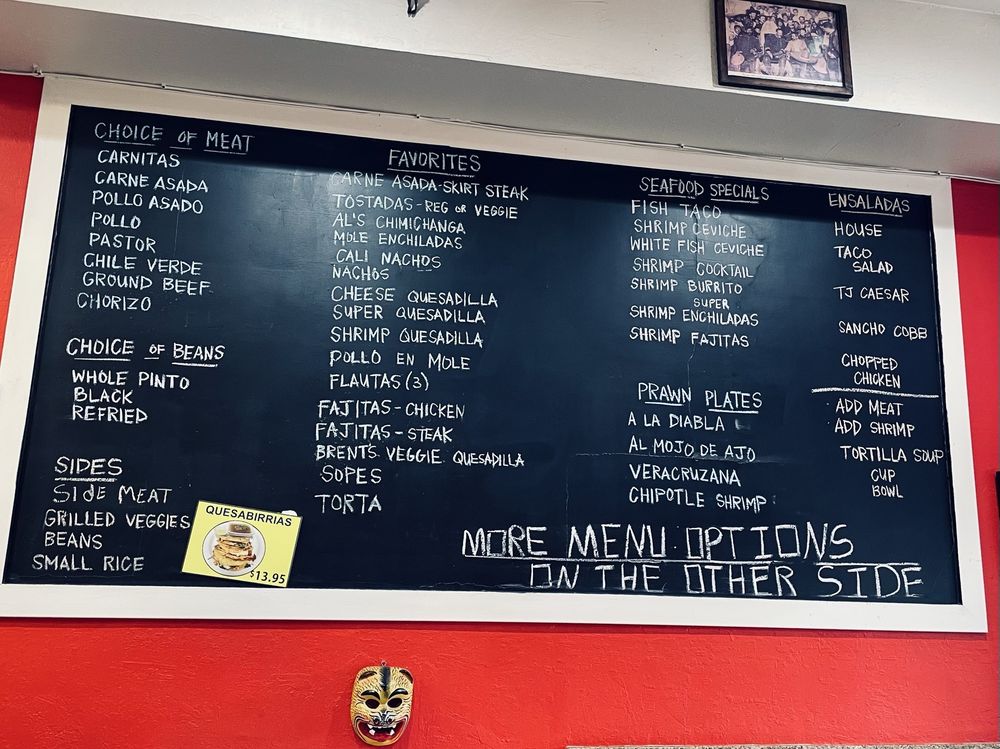 CHOICE OF MEAT
CARNITAS
CARNE ASADA
POLLO ASADO
POLLO
PASTOR
CHILE VERDE
GROUND BEEF
CHORIZO
CHOICE OF BEANS
WHOLE PINTO
BLACK
REFRIED
SIDES
SIDE MEAT
GRILLED VEGGIES
BEANS
SMALL RICE
QUESABIRRIAS
$13.95
FAVORITES
CARNE ASADA-SKIRT STEAK
TOSTADAS-REG OR VEGGIE
AL'S CHIMICHANGA
MOLE ENCHILADAS
CALI NACHOS
NACHOS
CHEESE QUESADILLA
SUPER QUESADILLA
SHRIMP QUESADILLA
POLLO EN MOLE
FLAUTAS (3)
FAJITAS-CHICKEN
FAJITAS-STEAK
BRENT'S VEGGIE QUESADILLA
SOPES
TORTA
SEAFOOD SPECIALS
FISH TACO
SHRIMP CEVICHE
WHITE FISH CEVICHE
SHRIMP COCKTAIL
SHRIMP BURRITO
SUPER
SHRIMP ENCHILADAS
SHRIMP FAJITAS
PRAWN PLATES
A LA DIABLA
AL MOJO DE AJO
VERACRUZANA
CHIPOTLE SHRIMP
ENSALADAS
HOUSE
TACO
SALAD
TJ CAESAR
SANCHO COBB
CHOPPED
CHICKEN
ADD MEAT
ADD SHRIMP
TORTILLA SOUP
CUP
BOWL
MORE MENU OPTIONS
ON THE OTHER SIDE